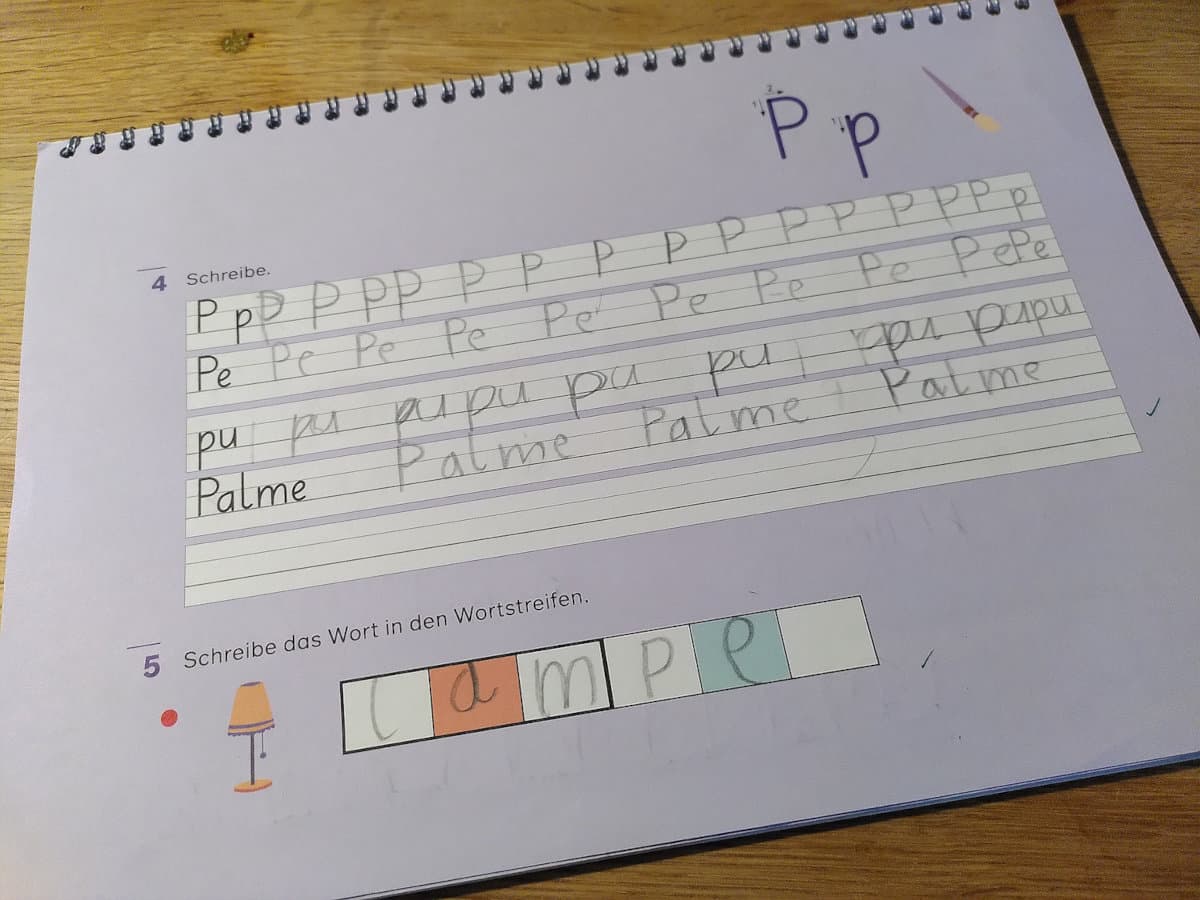 P p
4 Schreibe.
P p P P P P P P P P P P P P P P P p
Pe Pe Pe Pe Pe Pe Pe Pe Pe Pe
pu pu pu pu pu pu pu pu pu
Palme Palme Palme Palme
5 Schreibe das Wort in den Wortstreifen.
l a m p e